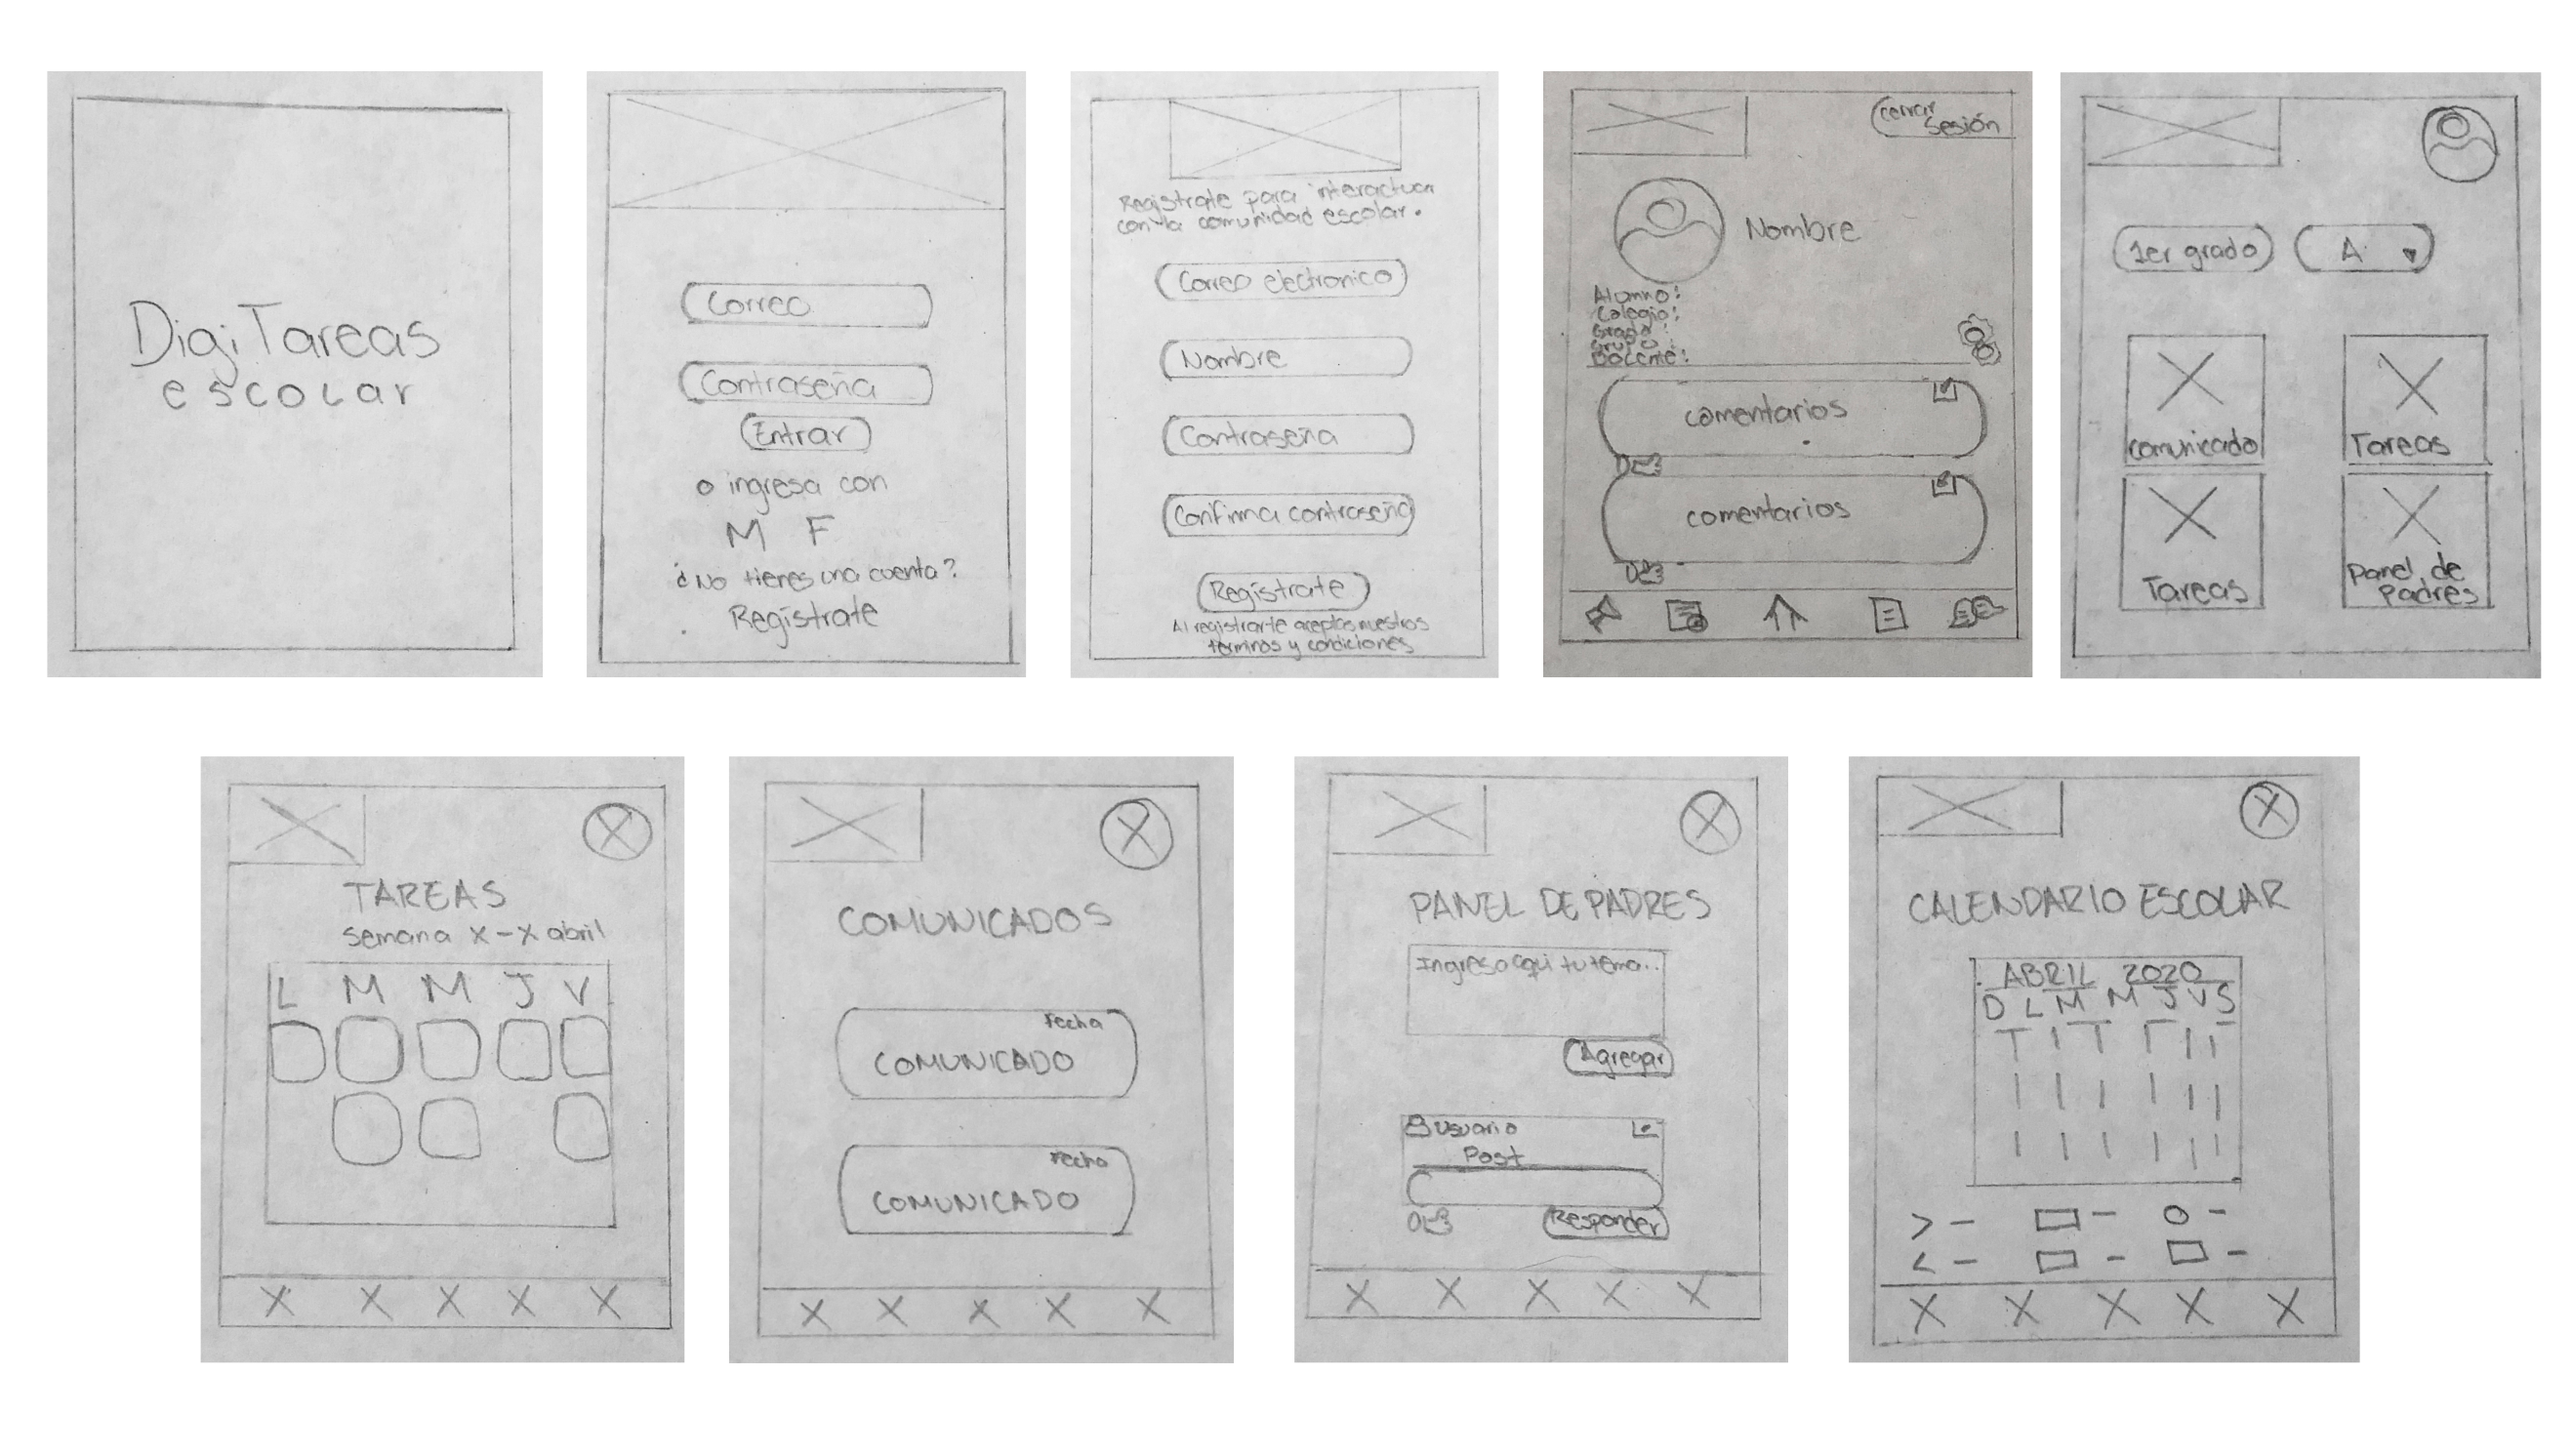 DigiTareas
escolar
Correo
Contraseña
Entrar
o ingresa con
M F
¿No tienes una cuenta?
Regístrate
Registrate para interactuar
con la comunidad escolar.
Correo electronico
Nombre
Contraseña
Confirma contraseña
Regístrate
Al registrarte aceptas nuestros
términos y condiciones
cerrar
sesión
Nombre
Alumno:
Colegio:
Grado:
Grupo:
Docente:
comentarios
comentarios
1er grado
A
comunicado
Tareas
Tareas
Panel de
Padres
TAREAS
semana x-x abril
L M M J V
COMUNICADOS
Fecha
COMUNICADO
Fecha
COMUNICADO
PANEL DE PADRES
Ingresa aqui tu tema...
Agregar
Usuario
Post
Responder
CALENDARIO ESCOLAR
ABRIL 2020
D L M M J V S